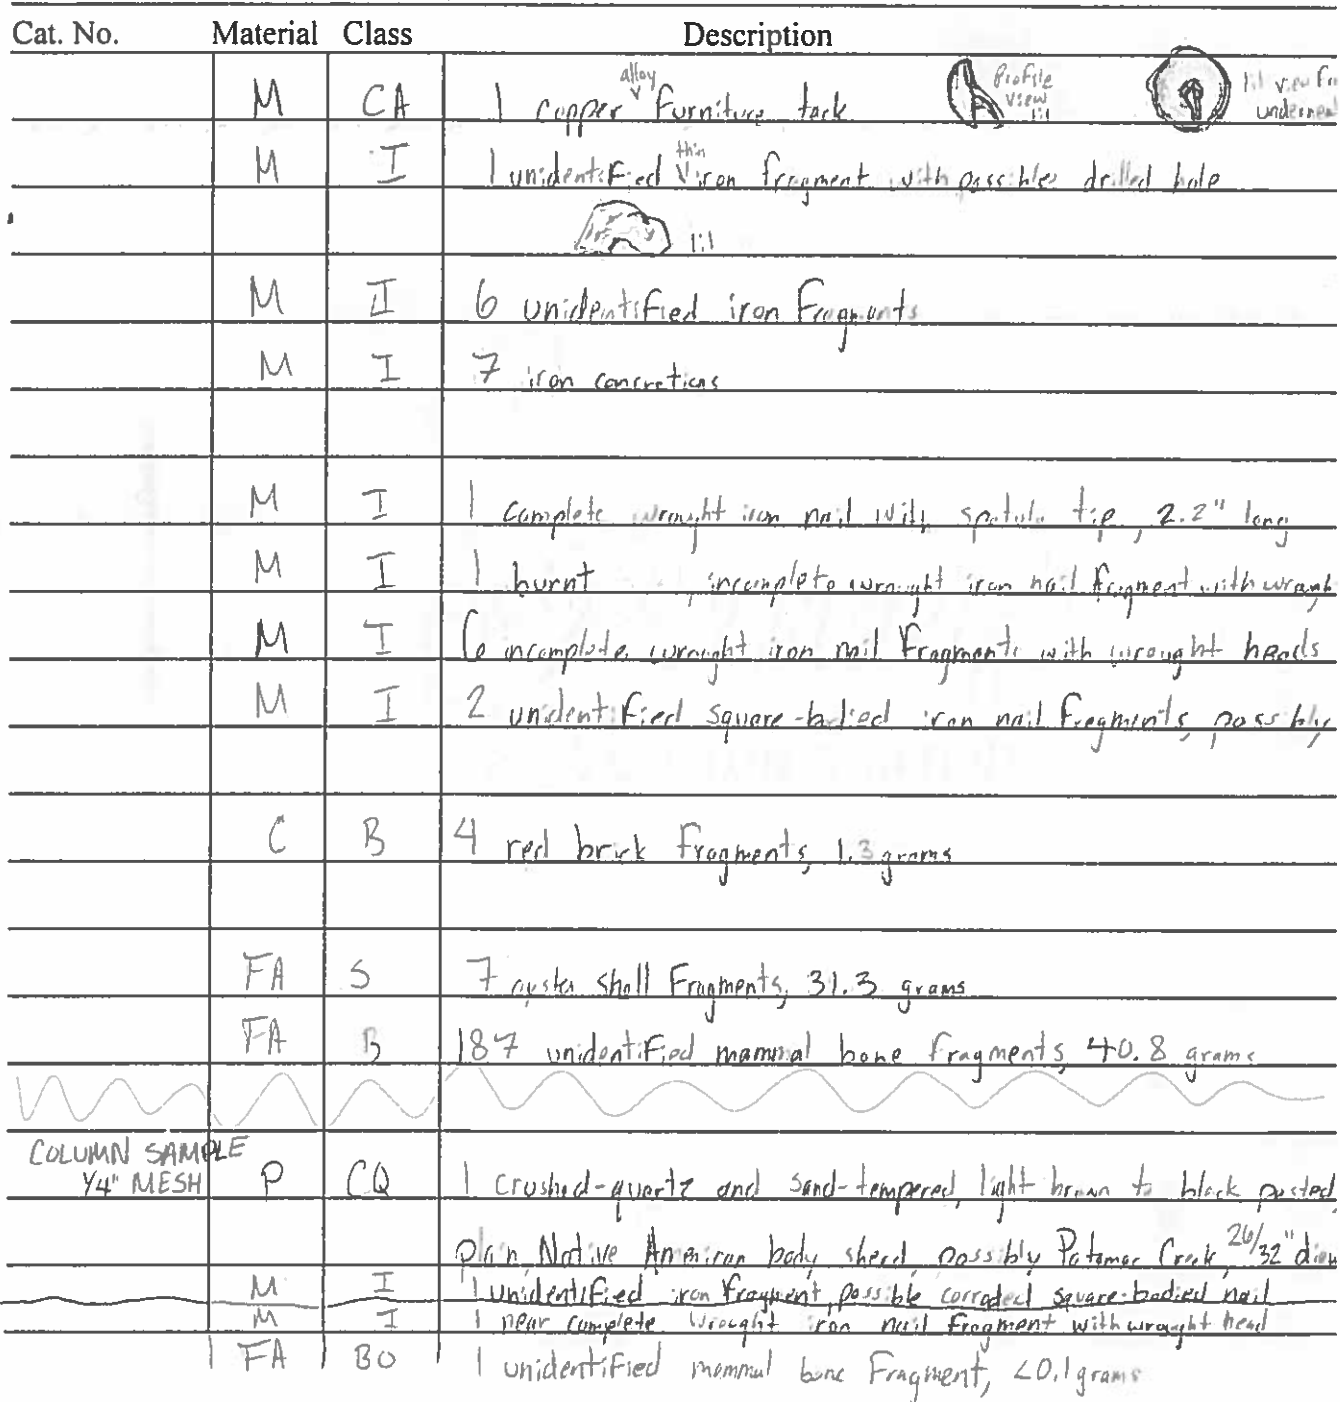 Cat. No. Material Class Description
M CA 1 copper alloy furniture tack Profile view 1:1 1:1 view underneath
M I 1 unidentified thin iron fragment with possible drilled hole
1:1
M I 6 unidentified iron fragments
M I 7 iron concretions
M I 1 complete wrought iron nail with spatula tip, 2.2" long
M I 1 burnt , incomplete wrought iron nail fragment with wrough
M I 6 incomplete wrought iron nail fragments with wrought heads
M I 2 unidentified square-bodied iron nail fragments, possibly
C B 4 red brick fragments, 1.3 grams
FA S 7 oyster shell fragments, 31.3 grams
FA B 187 unidentified mammal bone fragments, 40.8 grams
COLUMN SAMPLE
1/4" MESH P CQ 1 crushed-quartz and sand-tempered, light brown to black pasted,
plain Native American body sherd, possibly Potomac Creek, 26/32" diam
M I 1 unidentified iron fragment, possible corroded square-bodied nail
M I 1 near complete wrought iron nail fragment with wrought head
FA BO 1 unidentified mammal bone fragment, <0.1 grams